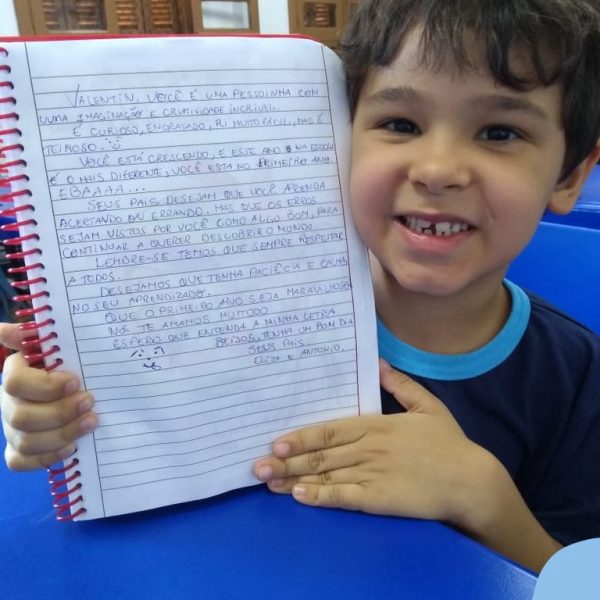 VALENTIN, VOCÊ É UMA PESSOINHA COM
UMA IMAGINAÇÃO E CRIATIVIDADE INCRÍVEL.
É CURIOSO, ENGRAÇADO, RI MUITO FÁCIL, MAS É
TEIMOSO.
VOCÊ ESTÁ CRESCENDO, E ESSE ANO NA ESCOLA
É O MAIS DIFERENTE, VOCÊ ESTA NO PRIMEIRO ANO.
EBAAAA...
SEUS PAIS DESEJAM QUE VOCÊ APRENDA
ACERTANDO OU ERRANDO. MAS QUE OS ERROS
SEJAM VISTOS POR VOCÊ COMO ALGO BOM, PARA
CONTINUAR A QUERER DESCOBRIR O MUNDO.
LEMBRE-SE TEMOS QUE SEMPRE RESPEITAR
A TODOS.
DESEJAMOS QUE TENHA PACIÊCIA E CALMA
NO SEU APRENDIZADO.
QUE O PRIMEIRO ANO SEJA MARAVILHOSO
NÓS TE AMAMOS MUITODO
ESPERO QUE ENTENDA A MINHA LETRA.
BEIJOS, TENHA UM BOM DIA
SEUS PAIS.
ELIZA E ANTONIO.